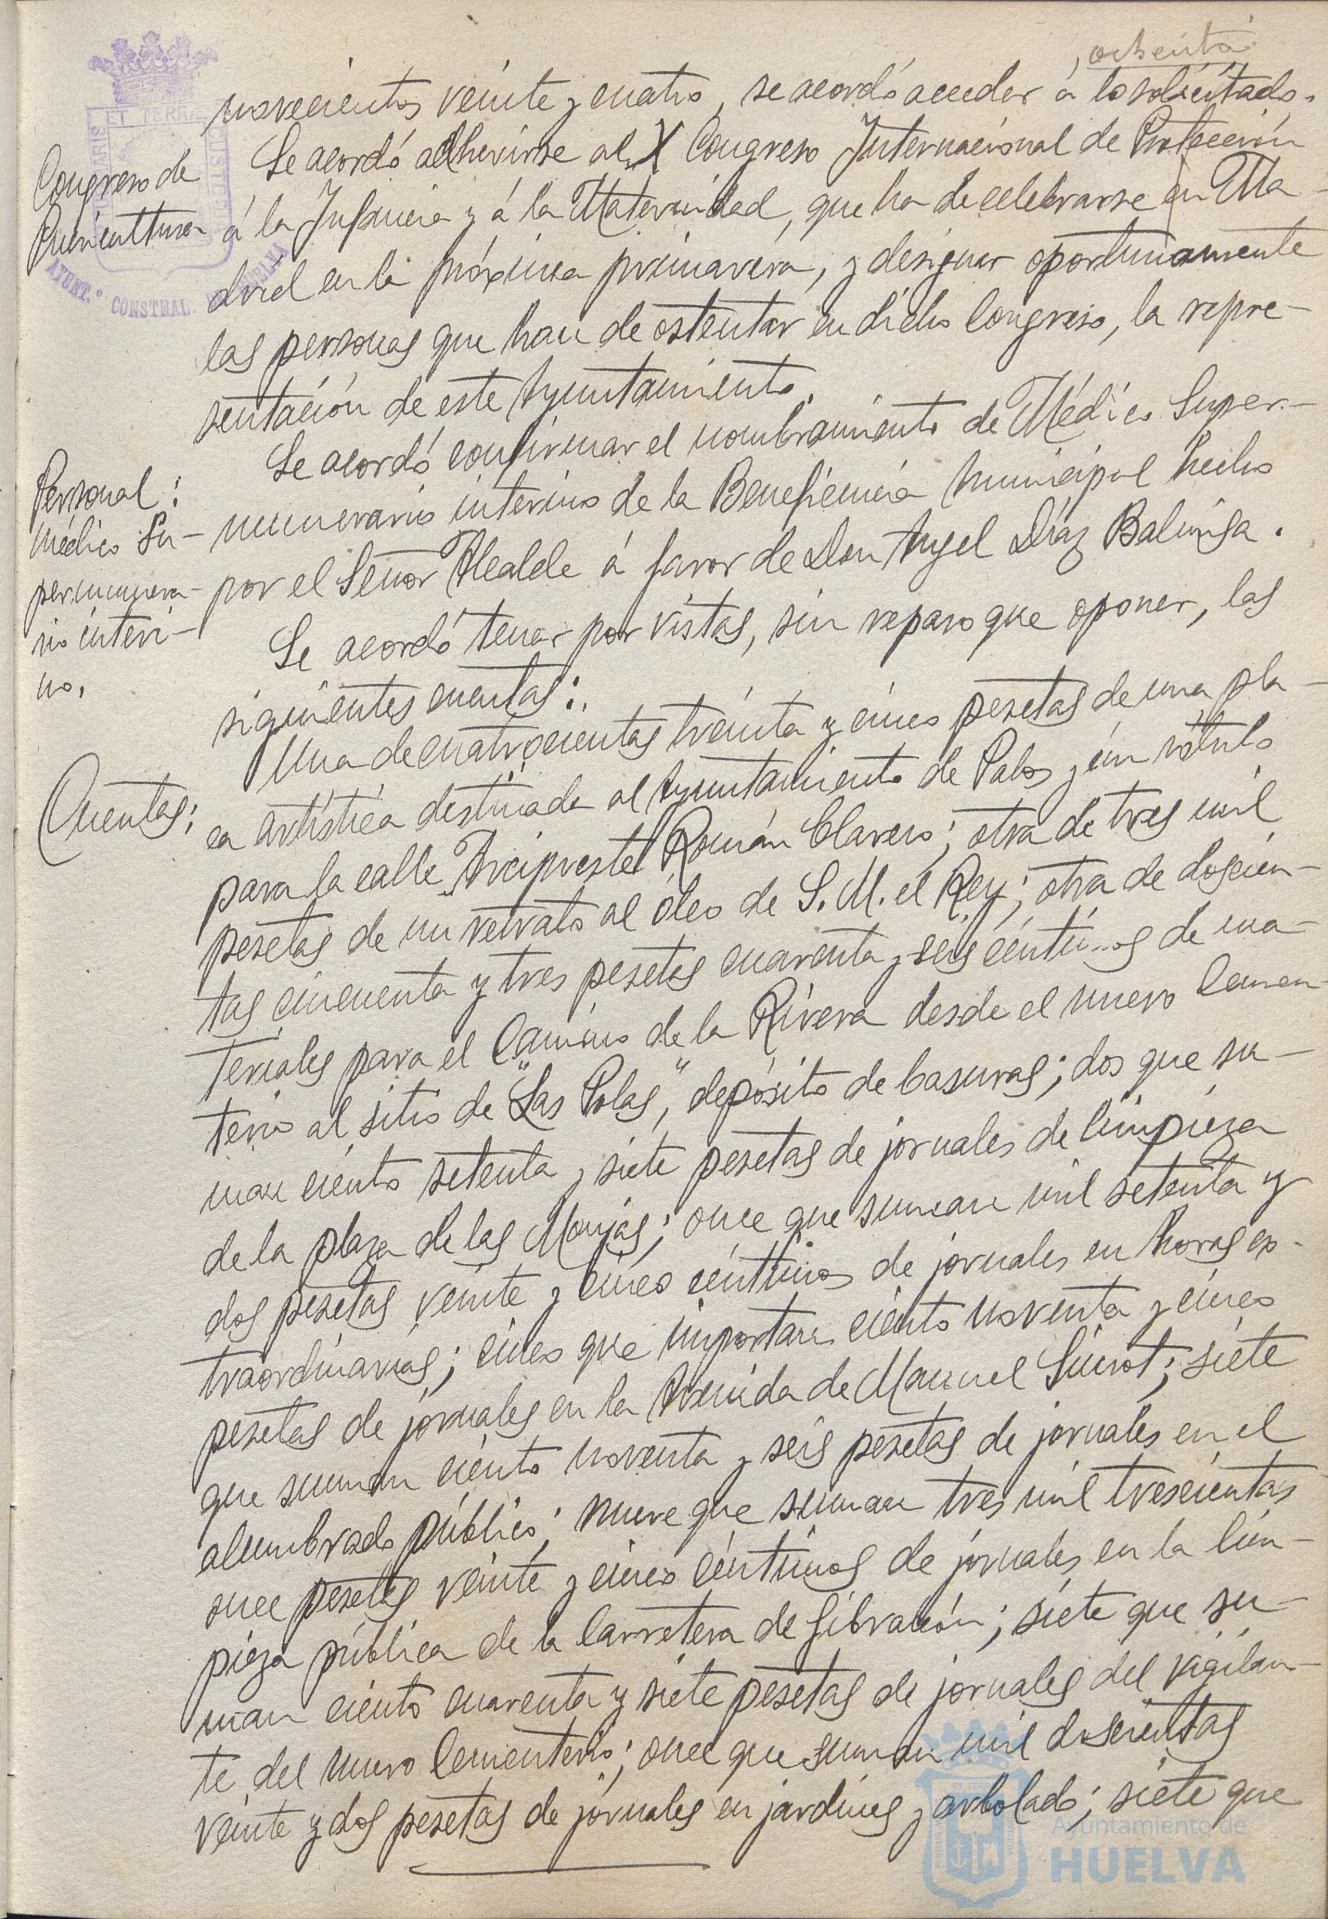 ochenta
novecientos veinte y cuatro, se acordó acceder á lo solicitado.
Congreso de
Puericultura
Se acordó adherirse al X Congreso Internacional de Protección
á la Infancia y á la Maternidad, que ha de celebrarse en Ma-
drid en la próxima primavera, y designar oportunamente
las personas que han de ostentar en dicho Congreso, la repre-
sentación de este Ayuntamiento.
Personal:
Médico Su-
pernumera-
rio interi-
no.
Se acordó confirmar el nombramiento de Médico Super-
numerario interino de la Beneficencia Municipal hecho
por el Señor Alcalde á favor de Don Angel Díaz
Se acordó tener por vistas, sin reparo que oponer, las
siguientes cuentas:
Cuentas:
Una de cuatrocientas treinta y cinco pesetas de una pla-
ca artística destinada al Ayuntamiento de Palos y un rótulo
para la calle Arcipreste Román Clavero; otra de tres mil
pesetas de un retrato al óleo de S. M. el Rey; otra de doscien-
tas cincuenta y tres pesetas cuarenta y seis céntimos de ma-
teriales para el Camino de la Rivera desde el nuevo Cemen-
terio al sitio de "Las Polas," depósito de basuras; dos que su-
man ciento setenta y siete pesetas de jornales de limpieza
de la plaza de las Monjas; once que suman mil setenta y
dos pesetas veinte y cinco céntimos de jornales en horas ex-
traordinarias; cinco que importan ciento noventa y cinco
pesetas de jornales en la Avenida de Manuel Siurot; siete
que suman ciento noventa y seis pesetas de jornales en el
alumbrado público; nueve que suman tres mil trescientas
once pesetas veinte y cinco céntimos de jornales en la lim-
pieza pública de la Carretera de Gibraleón; siete que su-
man ciento cuarenta y siete pesetas de jornales del vigilan-
te del nuevo Cementerio; once que suman mil doscientas
veinte y dos pesetas de jornales en jardines y arbolado; siete que
ET TERRÆ CUSTODIA
AYUNT.º CONSTNAL.
Ayuntamiento de
HUELVA